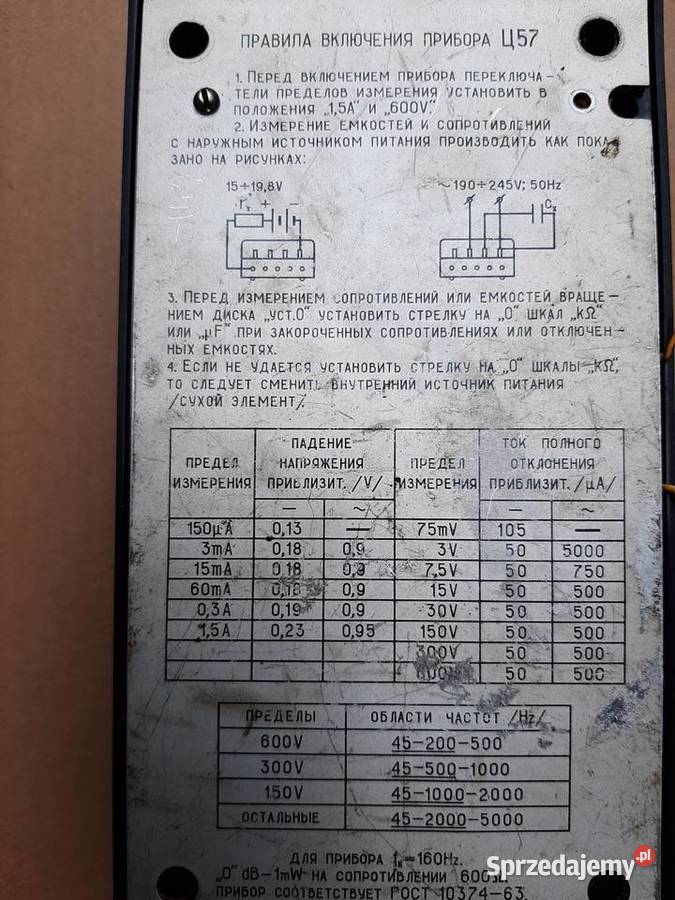 ПРАВИЛА ВКЛЮЧЕНИЯ ПРИБОРА Ц57
1. ПЕРЕД ВКЛЮЧЕНИЕМ ПРИБОРА ПЕРЕКЛЮЧА-
ТЕЛИ ПРЕДЕЛОВ ИЗМЕРЕНИЯ УСТАНОВИТЬ В
ПОЛОЖЕНИЯ „1,5А" И „600V".
2. ИЗМЕРЕНИЕ ЕМКОСТЕЙ И СОПРОТИВЛЕНИЙ
С НАРУЖНЫМ ИСТОЧНИКОМ ПИТАНИЯ ПРОИЗВОДИТЬ КАК ПОКА-
ЗАНО НА РИСУНКАХ:
15÷19,8V ~190÷245V; 50Hz
rₓ + − Cₓ
3. ПЕРЕД ИЗМЕРЕНИЕМ СОПРОТИВЛЕНИЙ ИЛИ ЕМКОСТЕЙ ВРАЩЕ-
НИЕМ ДИСКА „УСТ.О" УСТАНОВИТЬ СТРЕЛКУ НА „О" ШКАЛ „kΩ"
ИЛИ „μF" ПРИ ЗАКОРОЧЕННЫХ СОПРОТИВЛЕНИЯХ ИЛИ ОТКЛЮЧЕН-
НЫХ ЕМКОСТЯХ.
4. ЕСЛИ НЕ УДАЕТСЯ УСТАНОВИТЬ СТРЕЛКУ НА „О" ШКАЛЫ „kΩ",
ТО СЛЕДУЕТ СМЕНИТЬ ВНУТРЕННИЙ ИСТОЧНИК ПИТАНИЯ
/СУХОЙ ЭЛЕМЕНТ/.
ПРЕДЕЛ ИЗМЕРЕНИЯ ПАДЕНИЕ НАПРЯЖЕНИЯ ПРИБЛИЗИТ. /V/ ПРЕДЕЛ ИЗМЕРЕНИЯ ТОК ПОЛНОГО ОТКЛОНЕНИЯ ПРИБЛИЗИТ. /μA/
— ~ — ~
150μA 0,13 — 75mV 105 —
3mA 0,18 0,9 3V 50 5000
15mA 0,18 0,9 7,5V 50 750
60mA 0,18 0,9 15V 50 500
0,3A 0,19 0,9 30V 50 500
1,5A 0,23 0,95 150V 50 500
300V 50 500
600V 50 500
ПРЕДЕЛЫ ОБЛАСТИ ЧАСТОТ /Hz/
600V 45-200-500
300V 45-500-1000
150V 45-1000-2000
ОСТАЛЬНЫЕ 45-2000-5000
ДЛЯ ПРИБОРА fₖ=160Hz.
„О" dB-1mW НА СОПРОТИВЛЕНИИ 600Ω
ПРИБОР СООТВЕТСТВУЕТ ГОСТ 10374-63.
Sprzedajemy.pl